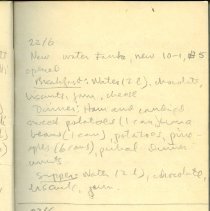 22/6
New water tanks, new 10-1, #5
opened
Breakfast: Water (2 l), chocolate,
biscuits, jam, cheese
Dinner: Ham and
potatoes (1 can), lima
beans (1 can), potatoes, pine-
apples (6 cans), dinner
Supper: Water (2 l), chocolate,
biscuits, jam.